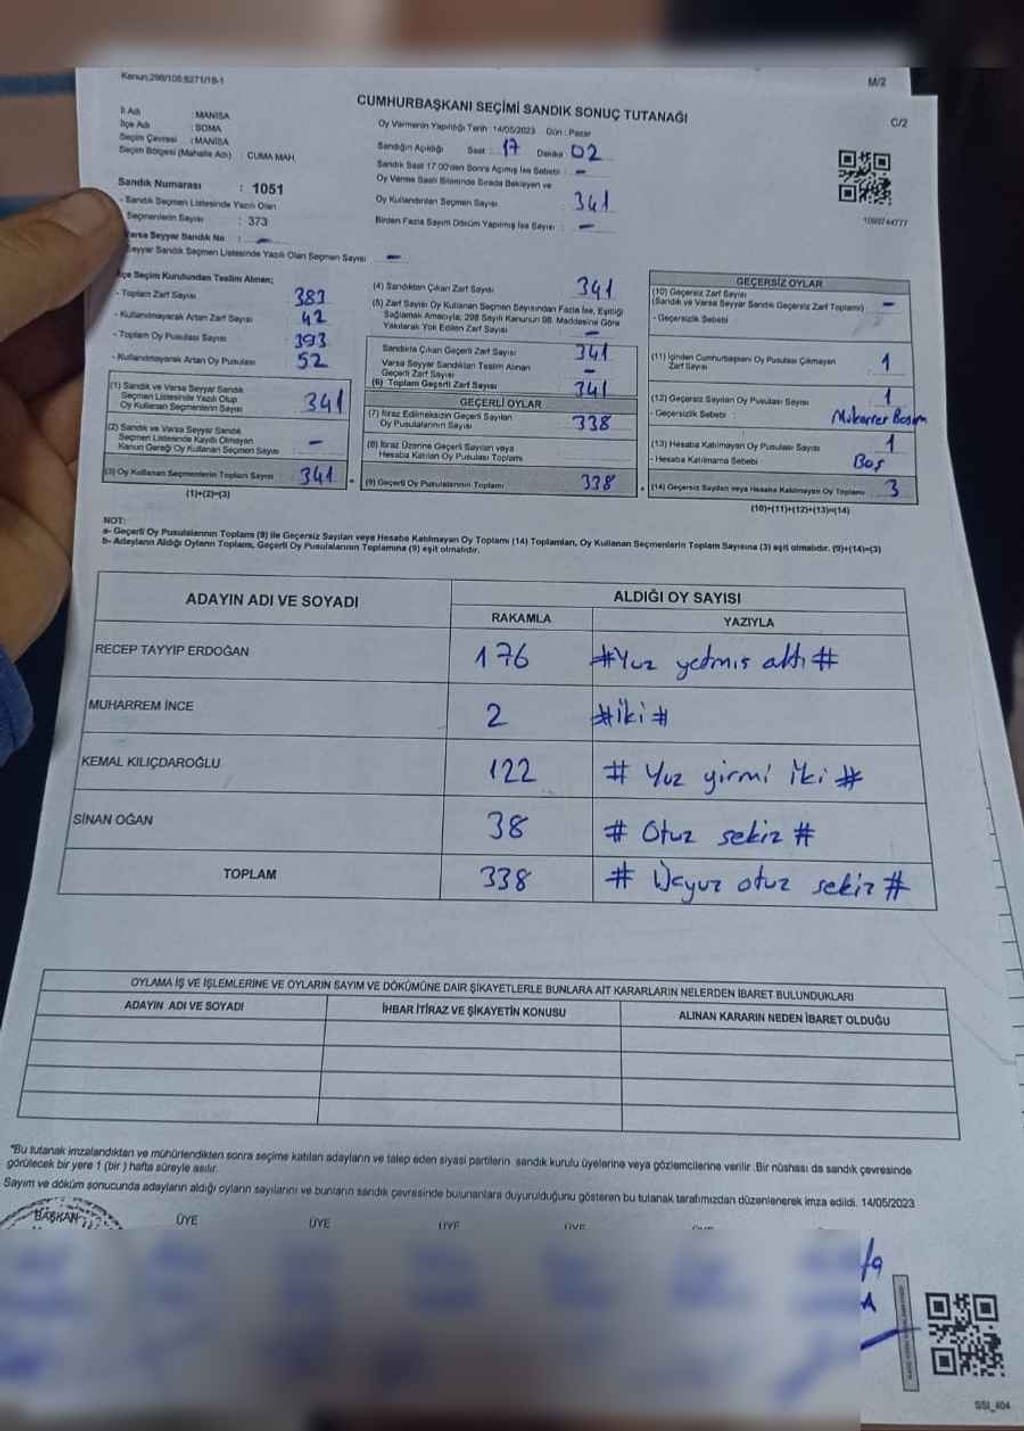 Kanun:298/105;6271/18-1
M/2
CUMHURBAŞKANI SEÇİMİ SANDIK SONUÇ TUTANAĞI
C/2
İl Adı : MANİSA
İlçe Adı : SOMA
Seçim Çevresi : MANİSA
Seçim Bölgesi (Mahalle Adı) : CUMA MAH.
Oy Vermenin Yapıldığı Tarih : 14/05/2023 Gün : Pazar
Sandığın Açıldığı Saat : 17 Dakika : 02
Sandık Saat 17:00'den Sonra Açılmış İse Sebebi : -
Oy Verme Saati Bitiminde Sırada Bekleyen ve
Oy Kullandırılan Seçmen Sayısı : 341
Birden Fazla Sayım Döküm Yapılmış İse Sayısı : -
Sandık Numarası : 1051
- Sandık Seçmen Listesinde Yazılı Olan
Seçmenlerin Sayısı : 373
Varsa Seyyar Sandık No : -
Seyyar Sandık Seçmen Listesinde Yazılı Olan Seçmen Sayısı : -
İlçe Seçim Kurulundan Teslim Alınan;
- Toplam Zarf Sayısı 383
- Kullanılmayarak Artan Zarf Sayısı 42
- Toplam Oy Pusulası Sayısı 393
- Kullanılmayarak Artan Oy Pusulası 52
(1) Sandık ve Varsa Seyyar Sandık
Seçmen Listesinde Yazılı Olup
Oy Kullanan Seçmenlerin Sayısı 341
(2) Sandık ve Varsa Seyyar Sandık
Seçmen Listesinde Kayıtlı Olmayan
Kanun Gereği Oy Kullanan Seçmen Sayısı -
(3) Oy Kullanan Seçmenlerin Toplam Sayısı 341
(1)+(2)=(3)
(4) Sandıktan Çıkan Zarf Sayısı 341
(5) Zarf Sayısı Oy Kullanan Seçmen Sayısından Fazla İse, Eşitliği
Sağlamak Amacıyla; 298 Sayılı Kanunun 98. Maddesine Göre
Yakılarak Yok Edilen Zarf Sayısı -
Sandıkta Çıkan Geçerli Zarf Sayısı 341
Varsa Seyyar Sandıktan Teslim Alınan
Geçerli Zarf Sayısı -
(6) Toplam Geçerli Zarf Sayısı 341
GEÇERLİ OYLAR
(7) İtiraz Edilmeksizin Geçerli Sayılan
Oy Pusulalarının Sayısı 338
(8) İtiraz Üzerine Geçerli Sayılan veya
Hesaba Katılan Oy Pusulası Toplamı
(9) Geçerli Oy Pusulalarının Toplamı 338
GEÇERSİZ OYLAR
(10) Geçersiz Zarf Sayısı
(Sandık ve Varsa Seyyar Sandık Geçersiz Zarf Toplamı) -
- Geçersizlik Sebebi
(11) İçinden Cumhurbaşkanı Oy Pusulası Çıkmayan
Zarf Sayısı 1
(12) Geçersiz Sayılan Oy Pusulası Sayısı 1
- Geçersizlik Sebebi : Mükerrer Basım
(13) Hesaba Katılmayan Oy Pusulası Sayısı 1
- Hesaba Katılmama Sebebi Boş
(14) Geçersiz Sayılan veya Hesaba Katılmayan Oy Toplamı 3
(10)+(11)+(12)+(13)=(14)
NOT:
a- Geçerli Oy Pusulalarının Toplamı (9) ile Geçersiz Sayılan veya Hesaba Katılmayan Oy Toplamı (14) Toplamları, Oy Kullanan Seçmenlerin Toplam Sayısına (3) eşit olmalıdır. (9)+(14)=(3)
b- Adayların Aldığı Oyların Toplamı, Geçerli Oy Pusulalarının Toplamına (9) eşit olmalıdır.
ADAYIN ADI VE SOYADI
ALDIĞI OY SAYISI
RAKAMLA YAZIYLA
RECEP TAYYİP ERDOĞAN 176 #Yüz yetmiş altı#
MUHARREM İNCE 2 #İki#
KEMAL KILIÇDAROĞLU 122 # Yüz yirmi iki #
SİNAN OĞAN 38 # Otuz sekiz #
TOPLAM 338 # Üçyüz otuz sekiz #
OYLAMA İŞ VE İŞLEMLERİNE VE OYLARIN SAYIM VE DÖKÜMÜNE DAİR ŞİKAYETLERLE BUNLARA AİT KARARLARIN NELERDEN İBARET BULUNDUKLARI
ADAYIN ADI VE SOYADI İHBAR İTİRAZ VE ŞİKAYETİN KONUSU ALINAN KARARIN NEDEN İBARET OLDUĞU
*Bu tutanak imzalandıktan ve mühürlendikten sonra seçime katılan adayların ve talep eden siyasi partilerin sandık kurulu üyelerine veya gözlemcilerine verilir. Bir nüshası da sandık çevresinde
görülecek bir yere 1 (bir) hafta süreyle asılır.
Sayım ve döküm sonucunda adayların aldığı oyların sayılarını ve bunların sandık çevresinde bulunanlara duyurulduğunu gösteren bu tutanak tarafımızdan düzenlenerek imza edildi. 14/05/2023
BAŞKAN ÜYE ÜYE ÜYE ÜYE ÜYE
SSI_404